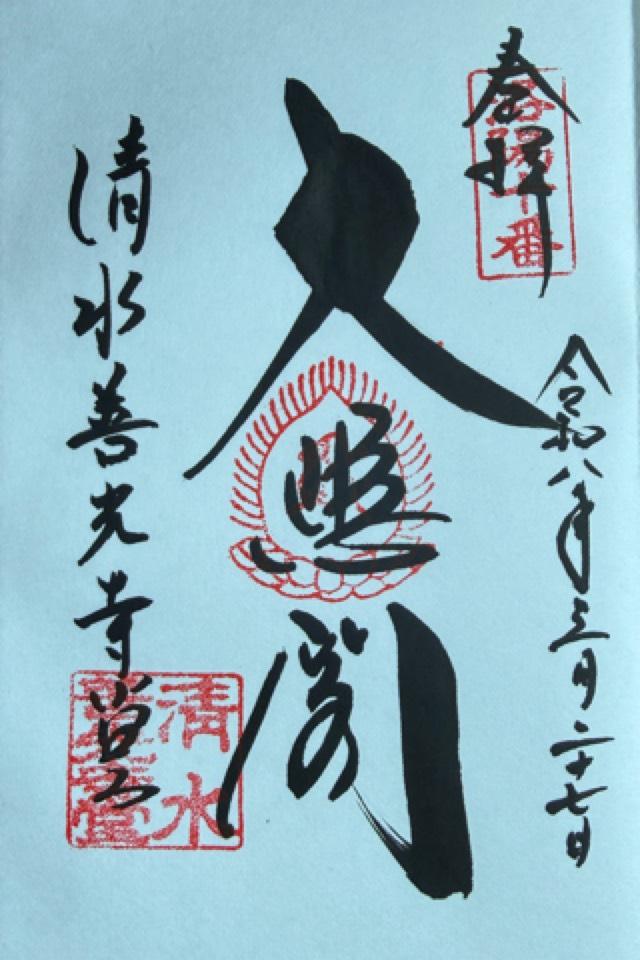 奉拝
洛陽十番
令和八年三月二十七日
大悲閣
清水善光寺堂
清水